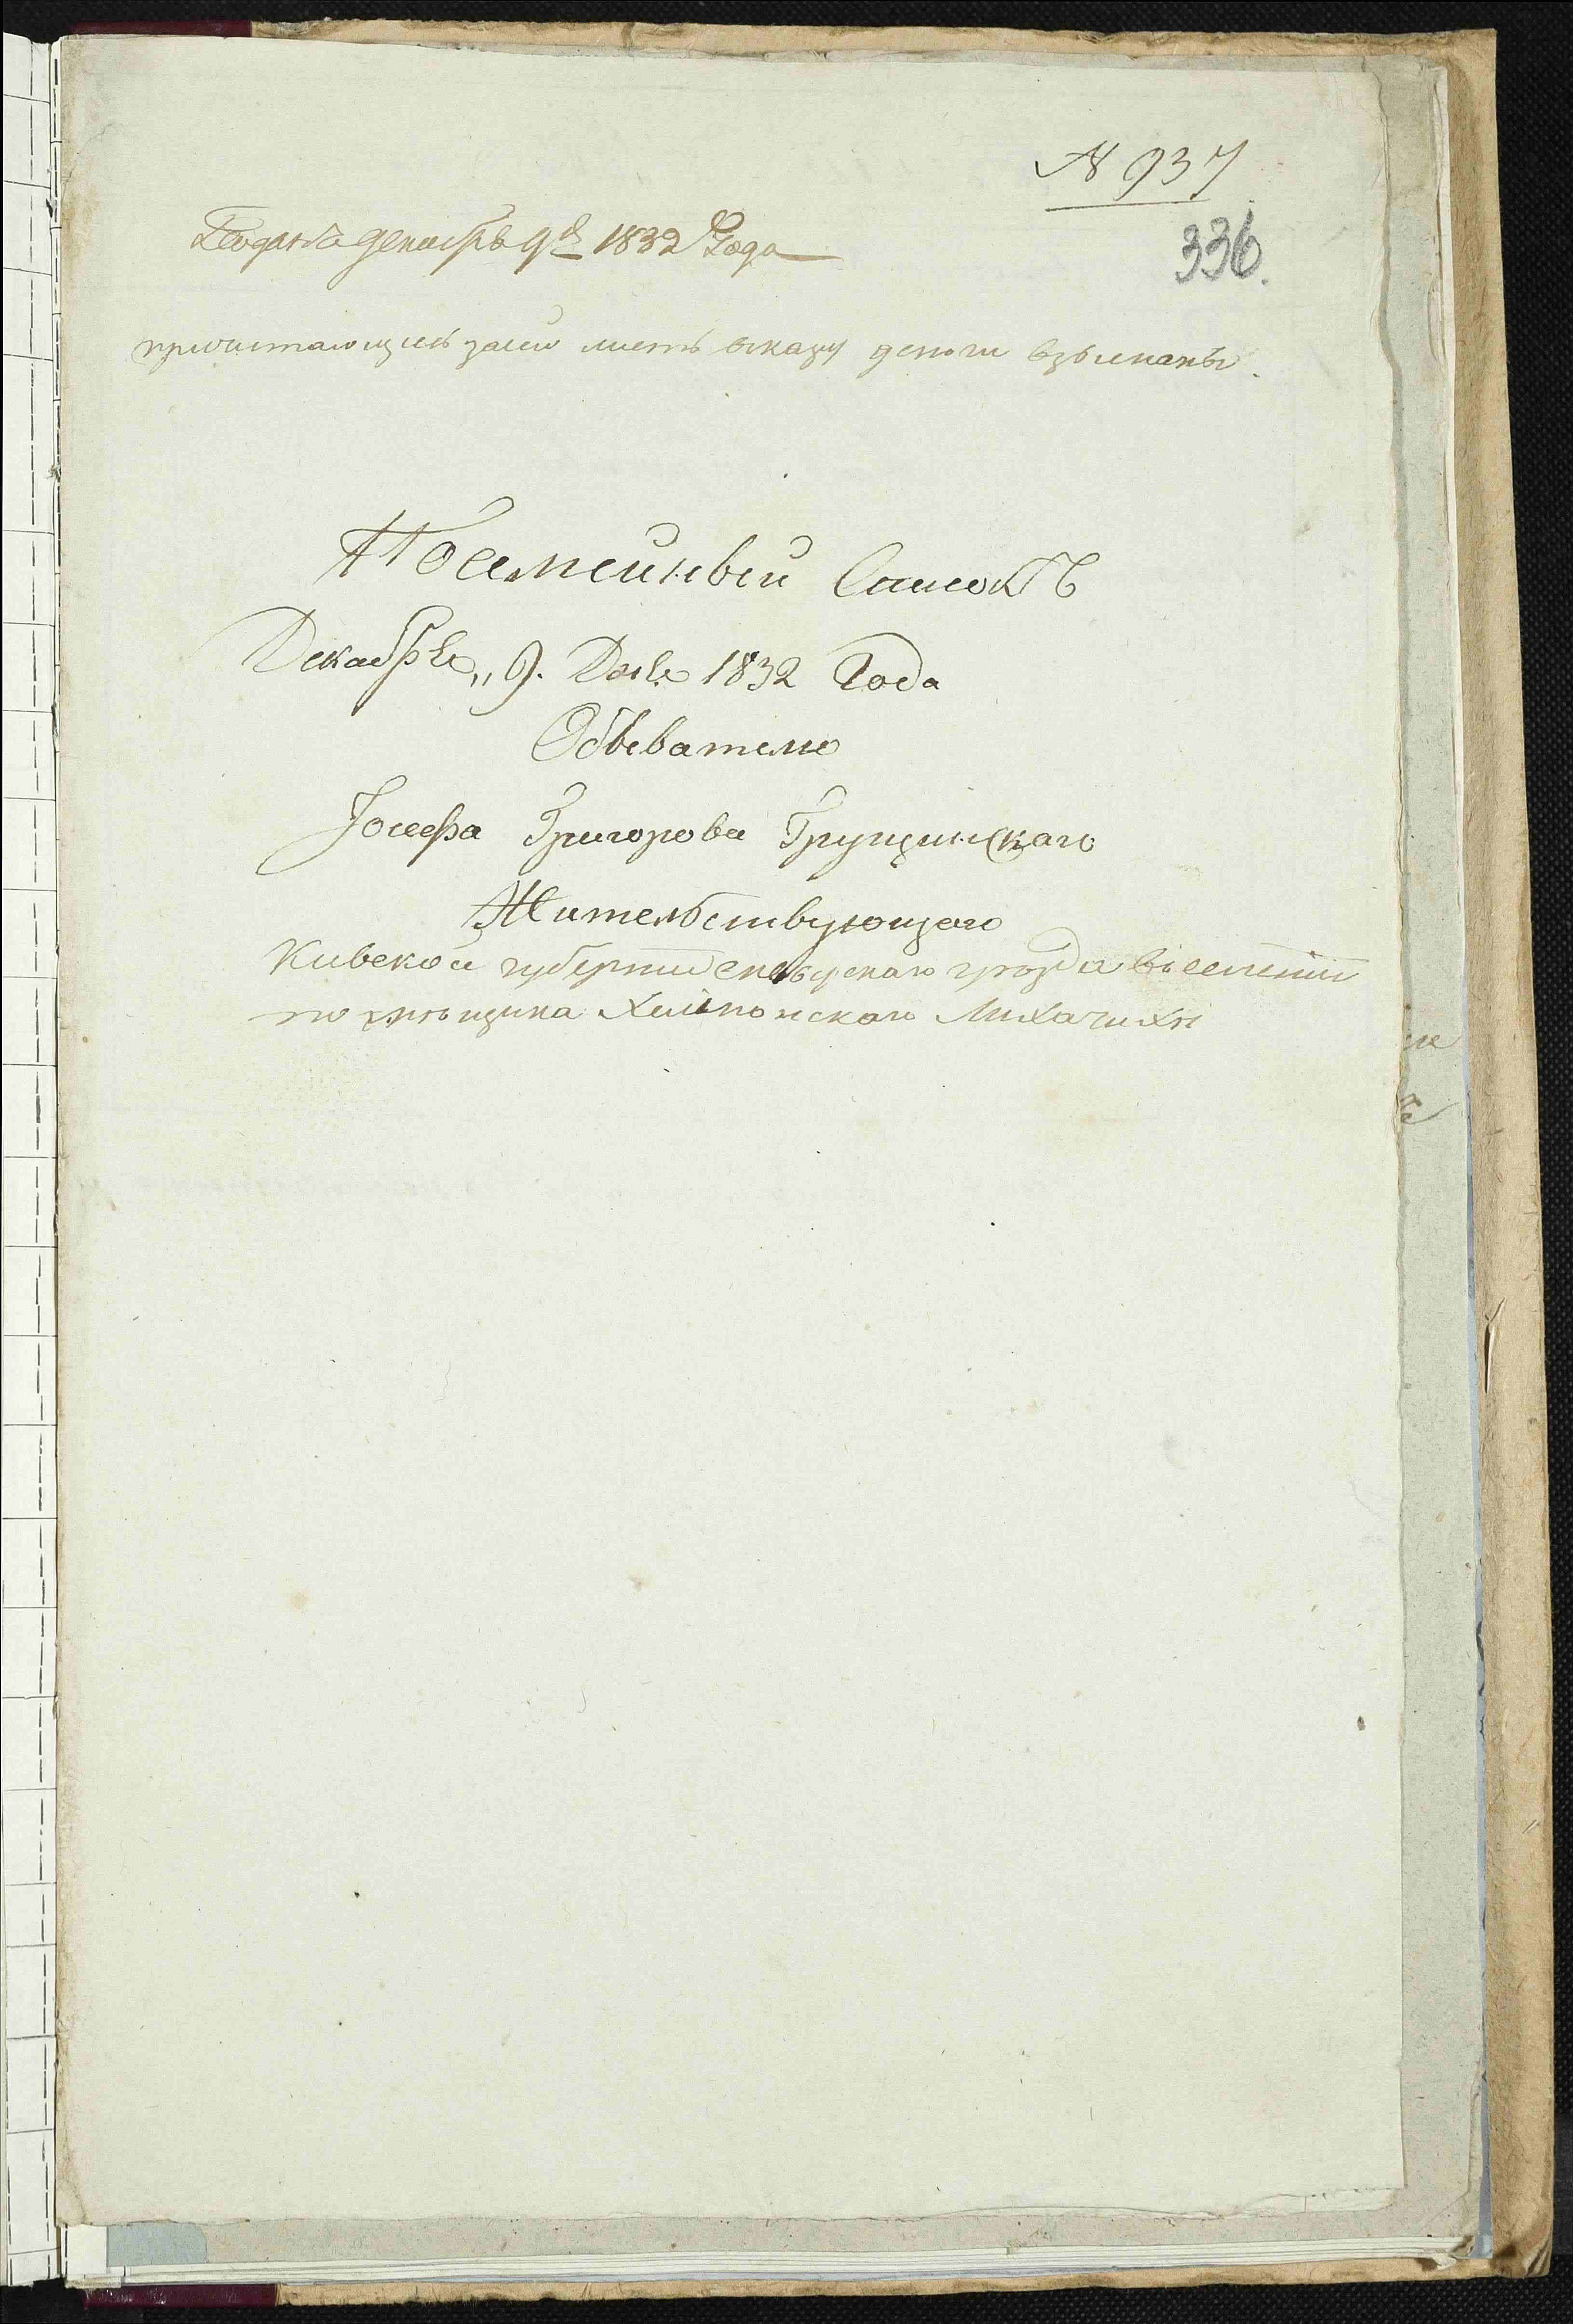 № 937
336.
Подана декабръ 9д 1832 Года
причитающиеъ засей листъ вказну деноги взысканы.
Посемейный Списокъ
Декабря „ 9. Дня 1832 Года
Обывателю
Іосефа Григорова Грущинскаго
Жительствующаго
Кивской губерніи сквирскаго уезда вселеніи
помѣщика Михачихи